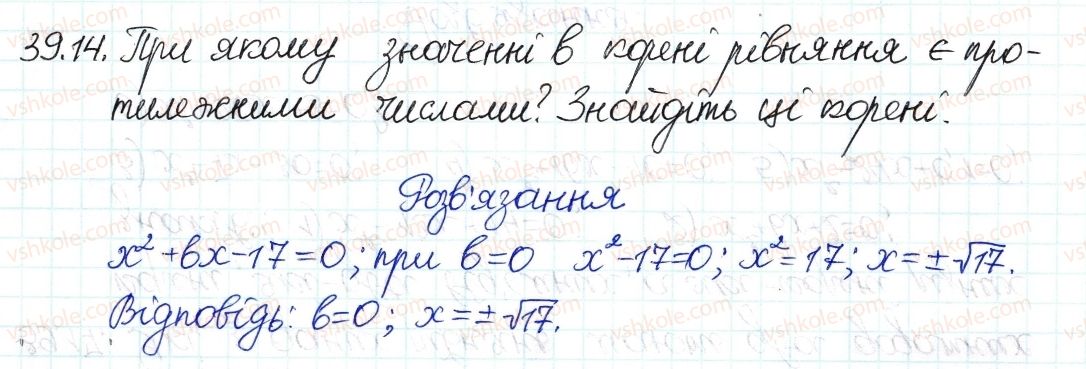 39.14. При якому значенні в корені рівняння є про-
тилежними числами? Знайдіть ці корені.
Розв'язання
x² + вx - 17 = 0; при в = 0 x² - 17 = 0; x² = 17; x = ± √17.
Відповідь: в = 0; x = ± √17.